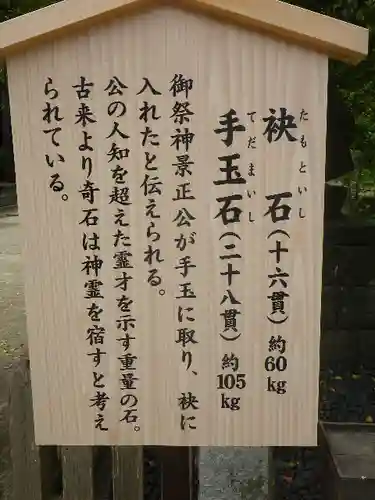 袂石（十六貫）約60kg
たもといし
手玉石（二十八貫）約105kg
てだまいし
御祭神景正公が手玉に取り、袂に
入れたと伝えられる。
公の人知を超えた霊才を示す重量の石。
古来より奇石は神霊を宿すと考え
られている。